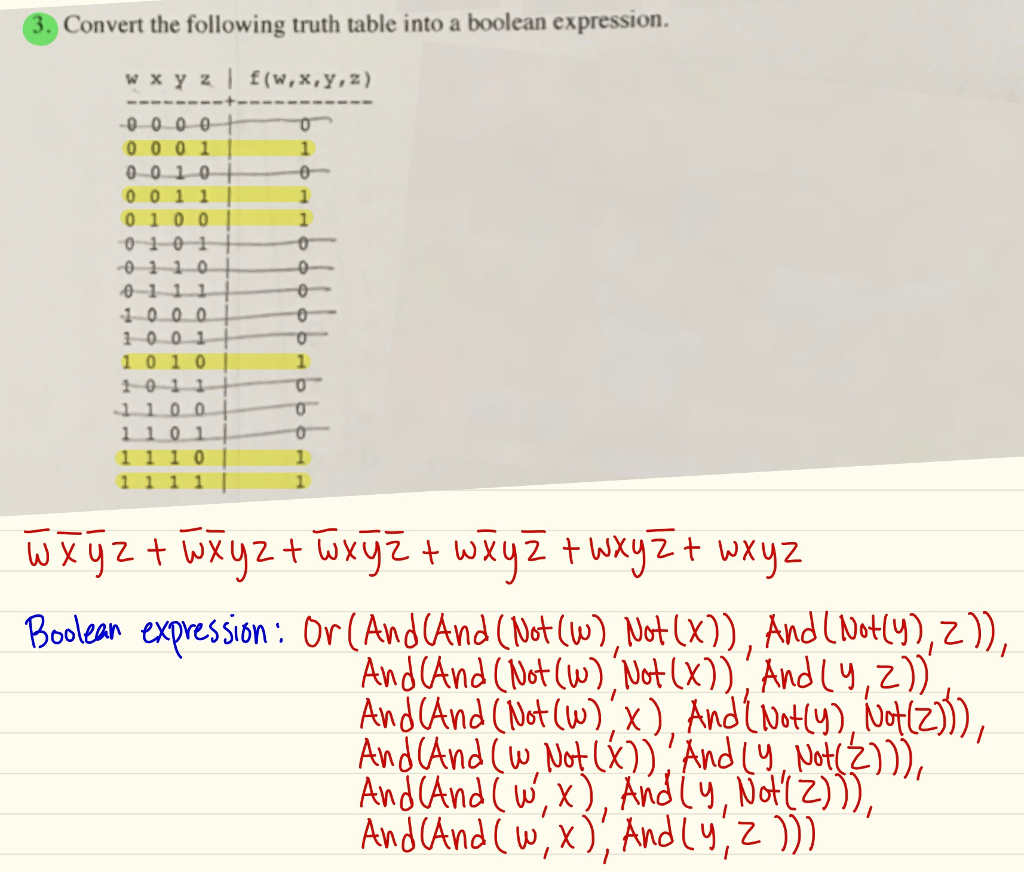 3. Convert the following truth table into a boolean expression.
w x y z | f(w,x,y,z)
--------+-----------
0 0 0 0 | 0
0 0 0 1 | 1
0 0 1 0 | 0
0 0 1 1 | 1
0 1 0 0 | 1
0 1 0 1 | 0
0 1 1 0 | 0
0 1 1 1 | 0
1 0 0 0 | 0
1 0 0 1 | 0
1 0 1 0 | 1
1 0 1 1 | 0
1 1 0 0 | 0
1 1 0 1 | 0
1 1 1 0 | 1
1 1 1 1 | 1
w̅ x̅ y̅ z + w̅ x̅ y z + w̅ x y̅ z̅ + w x̅ y z̅ + w x y z̅ + w x y z
Boolean expression: Or(And(And(Not(w), Not(x)), And(Not(y), z)),
And(And(Not(w), Not(x)), And(y, z)),
And(And(Not(w), x), And(Not(y), Not(z))),
And(And(w, Not(x)), And(y, Not(z))),
And(And(w, x), And(y, Not(z))),
And(And(w, x), And(y, z)))